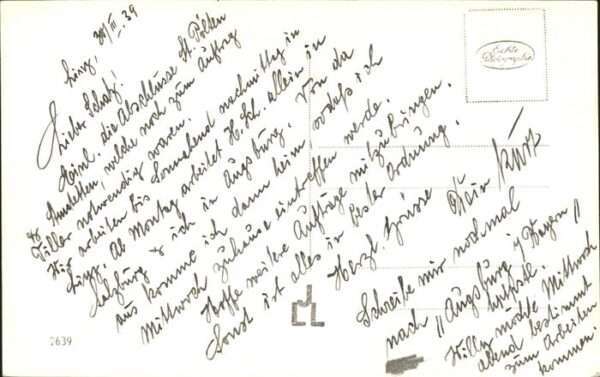 Linz, 30/III.39
Lieber Schatz!
Heinl. die Abschlüsse St. Pölten
Amstetten, welche noch zum Auftrag
& Tiller notwendig waren.
Wir arbeiten bis Sonnabend nachmittag in
Linz. Ab Montag arbeitet H. Sch. allein in
Salzburg & ich in Augsburg. Von da
aus komme ich dann heim sodaß ich
Mittwoch zuhause eintreffen werde.
Hoffe weitere Aufträge mitzubringen.
Sonst ist alles in bester Ordnung.
Herzl. Grüsse Dein Kurt
Schreibe mir nochmal
nach "Augsburg" Wagen"
Willy möchte Mittwoch
abend bestimmt
zum Arbeiten
kommen.
Echte
Photographie
2639